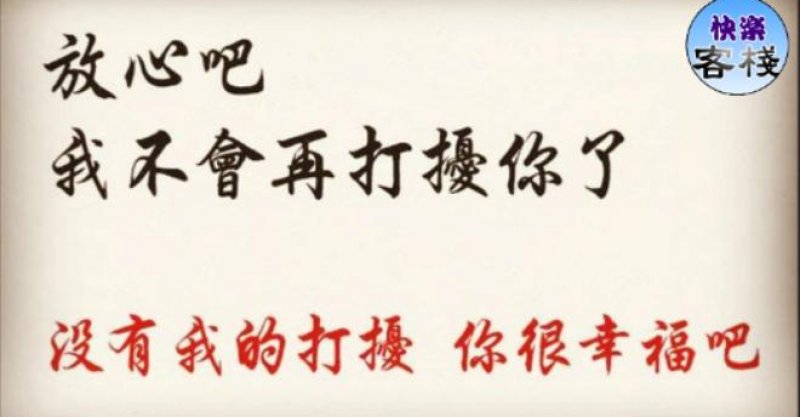 快樂
客棧
放心吧
我不會再打擾你了
没有我的打擾 你很幸福吧